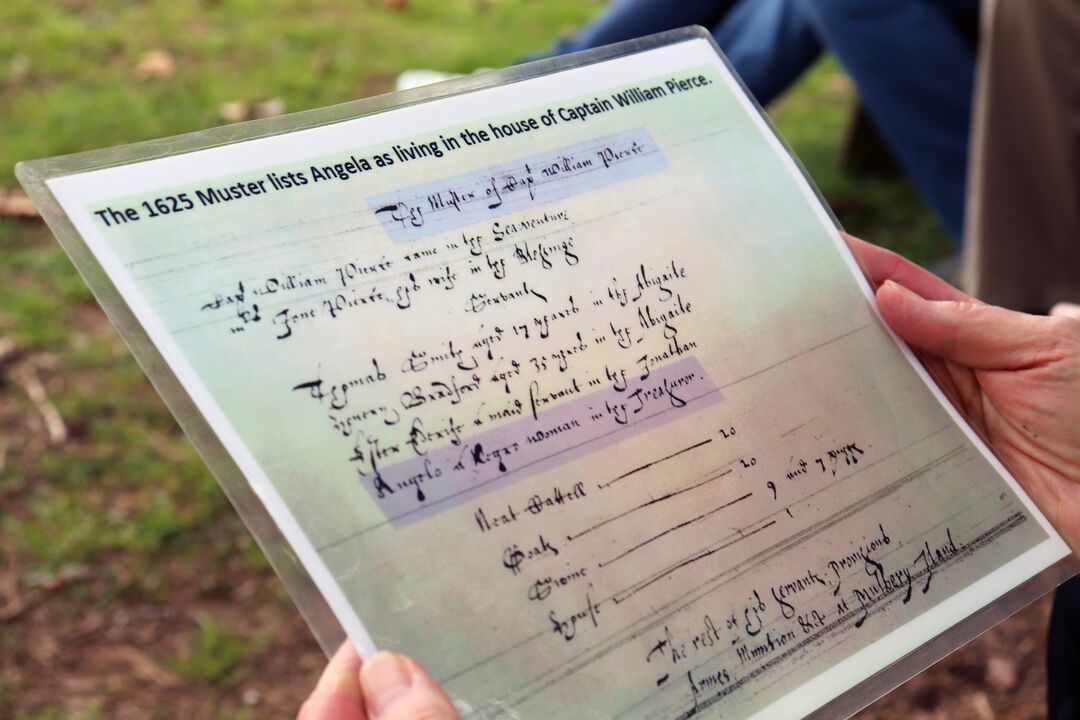 The 1625 Muster lists Angela as living in the house of Captain William Pierce.
The Muster of Capt William Peirce
Capt William Peirce came in the Sea-venture
mrs Jone Peirce his wife in the Blessinge
Servants
Thomas Smith aged 17 yeares in the Abigaile
Henery Bradford aged 35 yeares in the Abigaile
Ester a maid servant in the Jonathan
Angelo a Negro woman in the Treasuror.
Neat Cattell 20
Goats 20
Swine 9 and 7 Piggs
House 1
The rest of his servants, Provisions
Armes Munition &c. at Mulbery Iland.